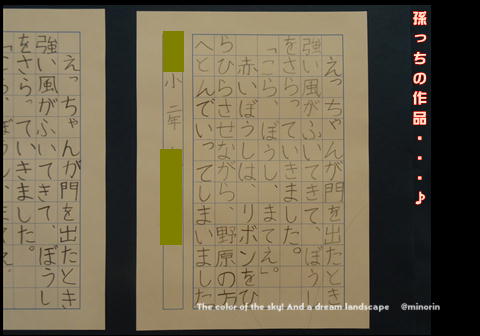 孫っちの作品・・・♪
えっちゃんが門を出たとき
強い風がふいてきて、ぼうし
をさらっていきました。
「こら、ぼうし、まてえ。」
赤いぼうしは、リボンをひ
らひらさせながら、野原の方
へとんでいってしまいました
小二年
えっちゃんが門を出たとき
強い風がふいてきて、ぼうし
をさらっていきました。
The color of the sky! And a dream landscape @minorin